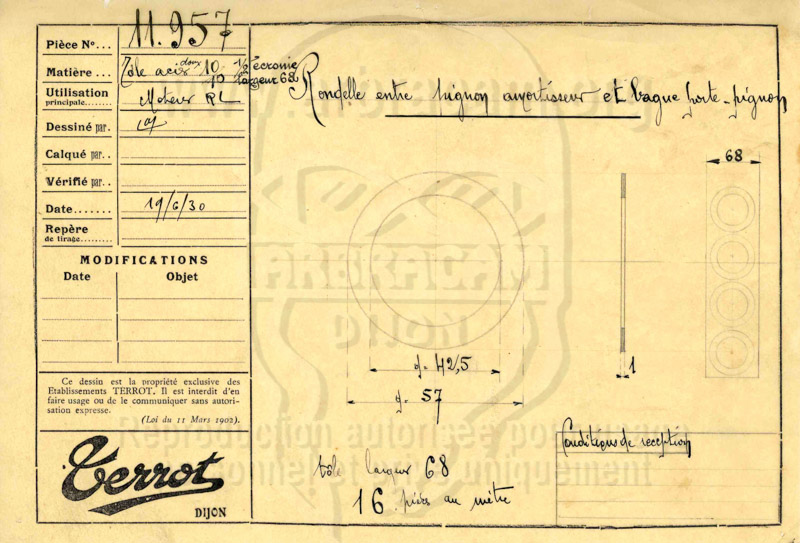 Pièce N°... 11.957
Matière... Tôle acier doux 10/10 ½ écrouie
largeur 68
Utilisation
principale....... Moteur RL
Dessiné par.
Calqué par..
Vérifié par..
Date....... 19/6/30
Repère
de tirage........
MODIFICATIONS
Date Objet
Ce dessin est la propriété exclusive des
Etablissements TERROT. Il est interdit d'en
faire usage ou de le communiquer sans autori-
sation expresse.
(Loi du 11 Mars 1902).
Terrot
DIJON
Rondelle entre pignon amortisseur et bague porte-pignon
68
1
d= 42,5
d= 57
tôle largeur 68
16 pièces au mètre
Conditions de reception
ARBRACAM
DIJON
Reproduction autorisée pour usage
personnel et privé uniquement